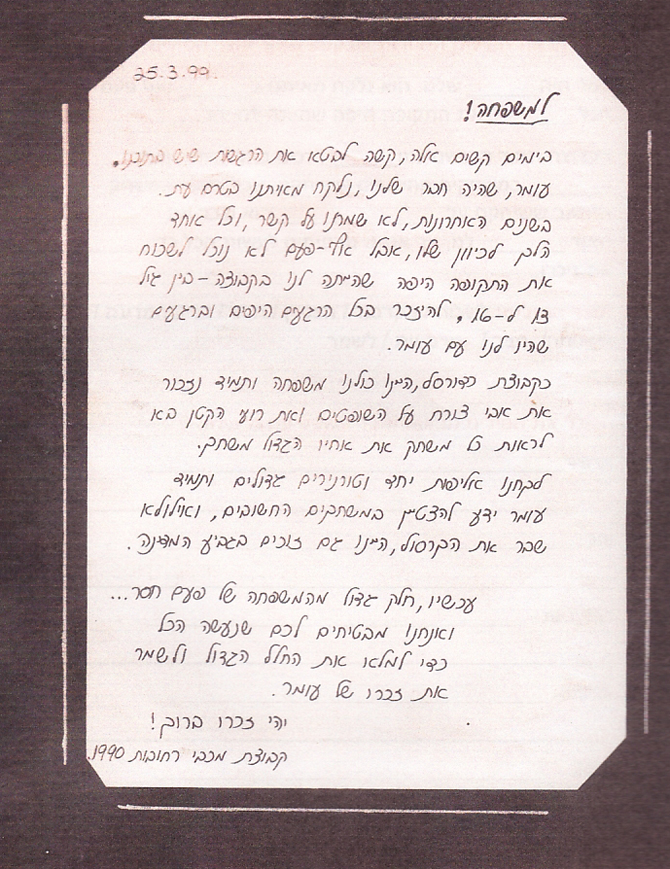 25.3.99.
למשפחה!
בימים קשים אלה, קשה לבטא את הרגשות שיש בתוכנו.
עומר, שהיה חבר שלנו, נלקח מאיתנו בטרם עת.
בשנים האחרונות, לא שמרנו על קשר, וכל אחד
הלך לכיוון שלו, אבל אף-פעם לא נוכל לשכוח
את התקופה היפה שהייתה לנו בקבוצה - בין גיל
ל-16, להיזכר בכל הרגעים היפים וברגעים
שהיו לנו עם עומר.
כקבוצת כדורסל, היינו כולנו משפחה ותמיד נזכור
את אבי צורח על השופטים ואת רועי הקטן בא
לראות כל משחק את אחיו הגדול משחק.
לקחנו אליפות יחד וטורנירים גדולים ותמיד
עומר ידע להצטיין במשחקים החשובים, ואילולא
שבר את הקרסול, היינו גם זוכים בגביע המדינה.
עכשיו, חלק גדול מהמשפחה של פעם חסר...
ואנחנו מבטיחים לכם שנעשה הכל
כדי למלא את החלל הגדול ולשמר
את זכרו של עומר.
יהי זכרו ברוך!
קבוצת מכבי רחובות 1990.